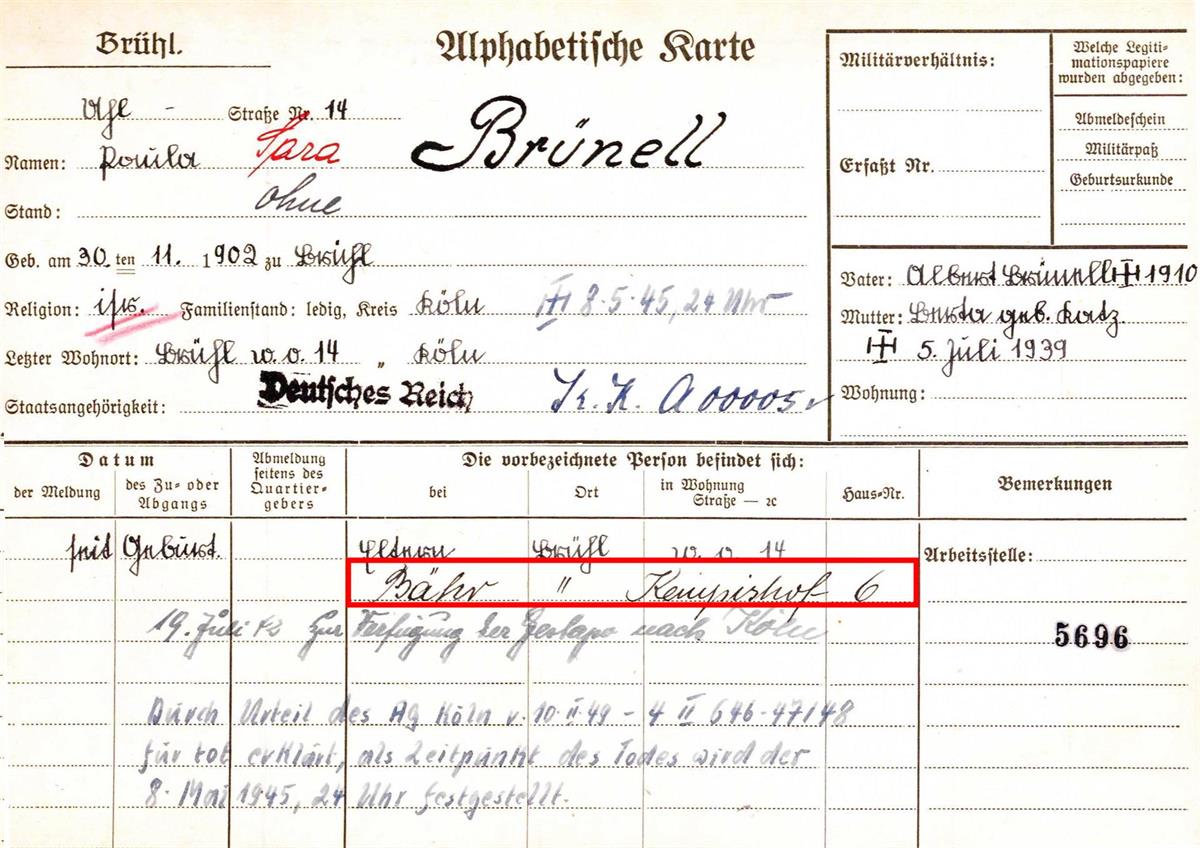 Brühl.
Alphabetische Karte
Uhl - Straße Nr. 14
Namen: Paula Sara Brünell
Stand: ohne
Geb. am 30. ten 11. 1902 zu Brühl
Religion: isr. Familienstand: ledig, Kreis Köln 8.5.45, 24 Uhr
Letzter Wohnort: Brühl w.o. 14 „ Köln
Staatsangehörigkeit: Deutsches Reich K. K. A 00005
Militärverhältnis:
Erfaßt Nr.
Welche Legiti-
mationspapiere
wurden abgegeben:
Abmeldeschein
Militärpaß
Geburtsurkunde
Vater: Albert Brünell 1910
Mutter: Berta geb. Katz.
5. Juli 1939
Wohnung:
Datum
der Meldung
des Zu- oder
Abgangs
Abmeldung
seitens des
Quartier-
gebers
Die vorbezeichnete Person befindet sich:
bei
Ort
in Wohnung
Straße — ꝛc
Haus-Nr.
Bemerkungen
seit Geburt. Eltern Brühl w. o 14
Arbeitsstelle:
Bähr " Kempishof 6
19. Juli 42 Zur Verfügung der Gestapo nach Köln
5696
Durch Urteil des AG Köln v. 10. II. 49 - 4 II 646-47/48
für tot erklärt, als Zeitpunkt des Todes wird der
8. Mai 1945, 24 Uhr festgestellt.